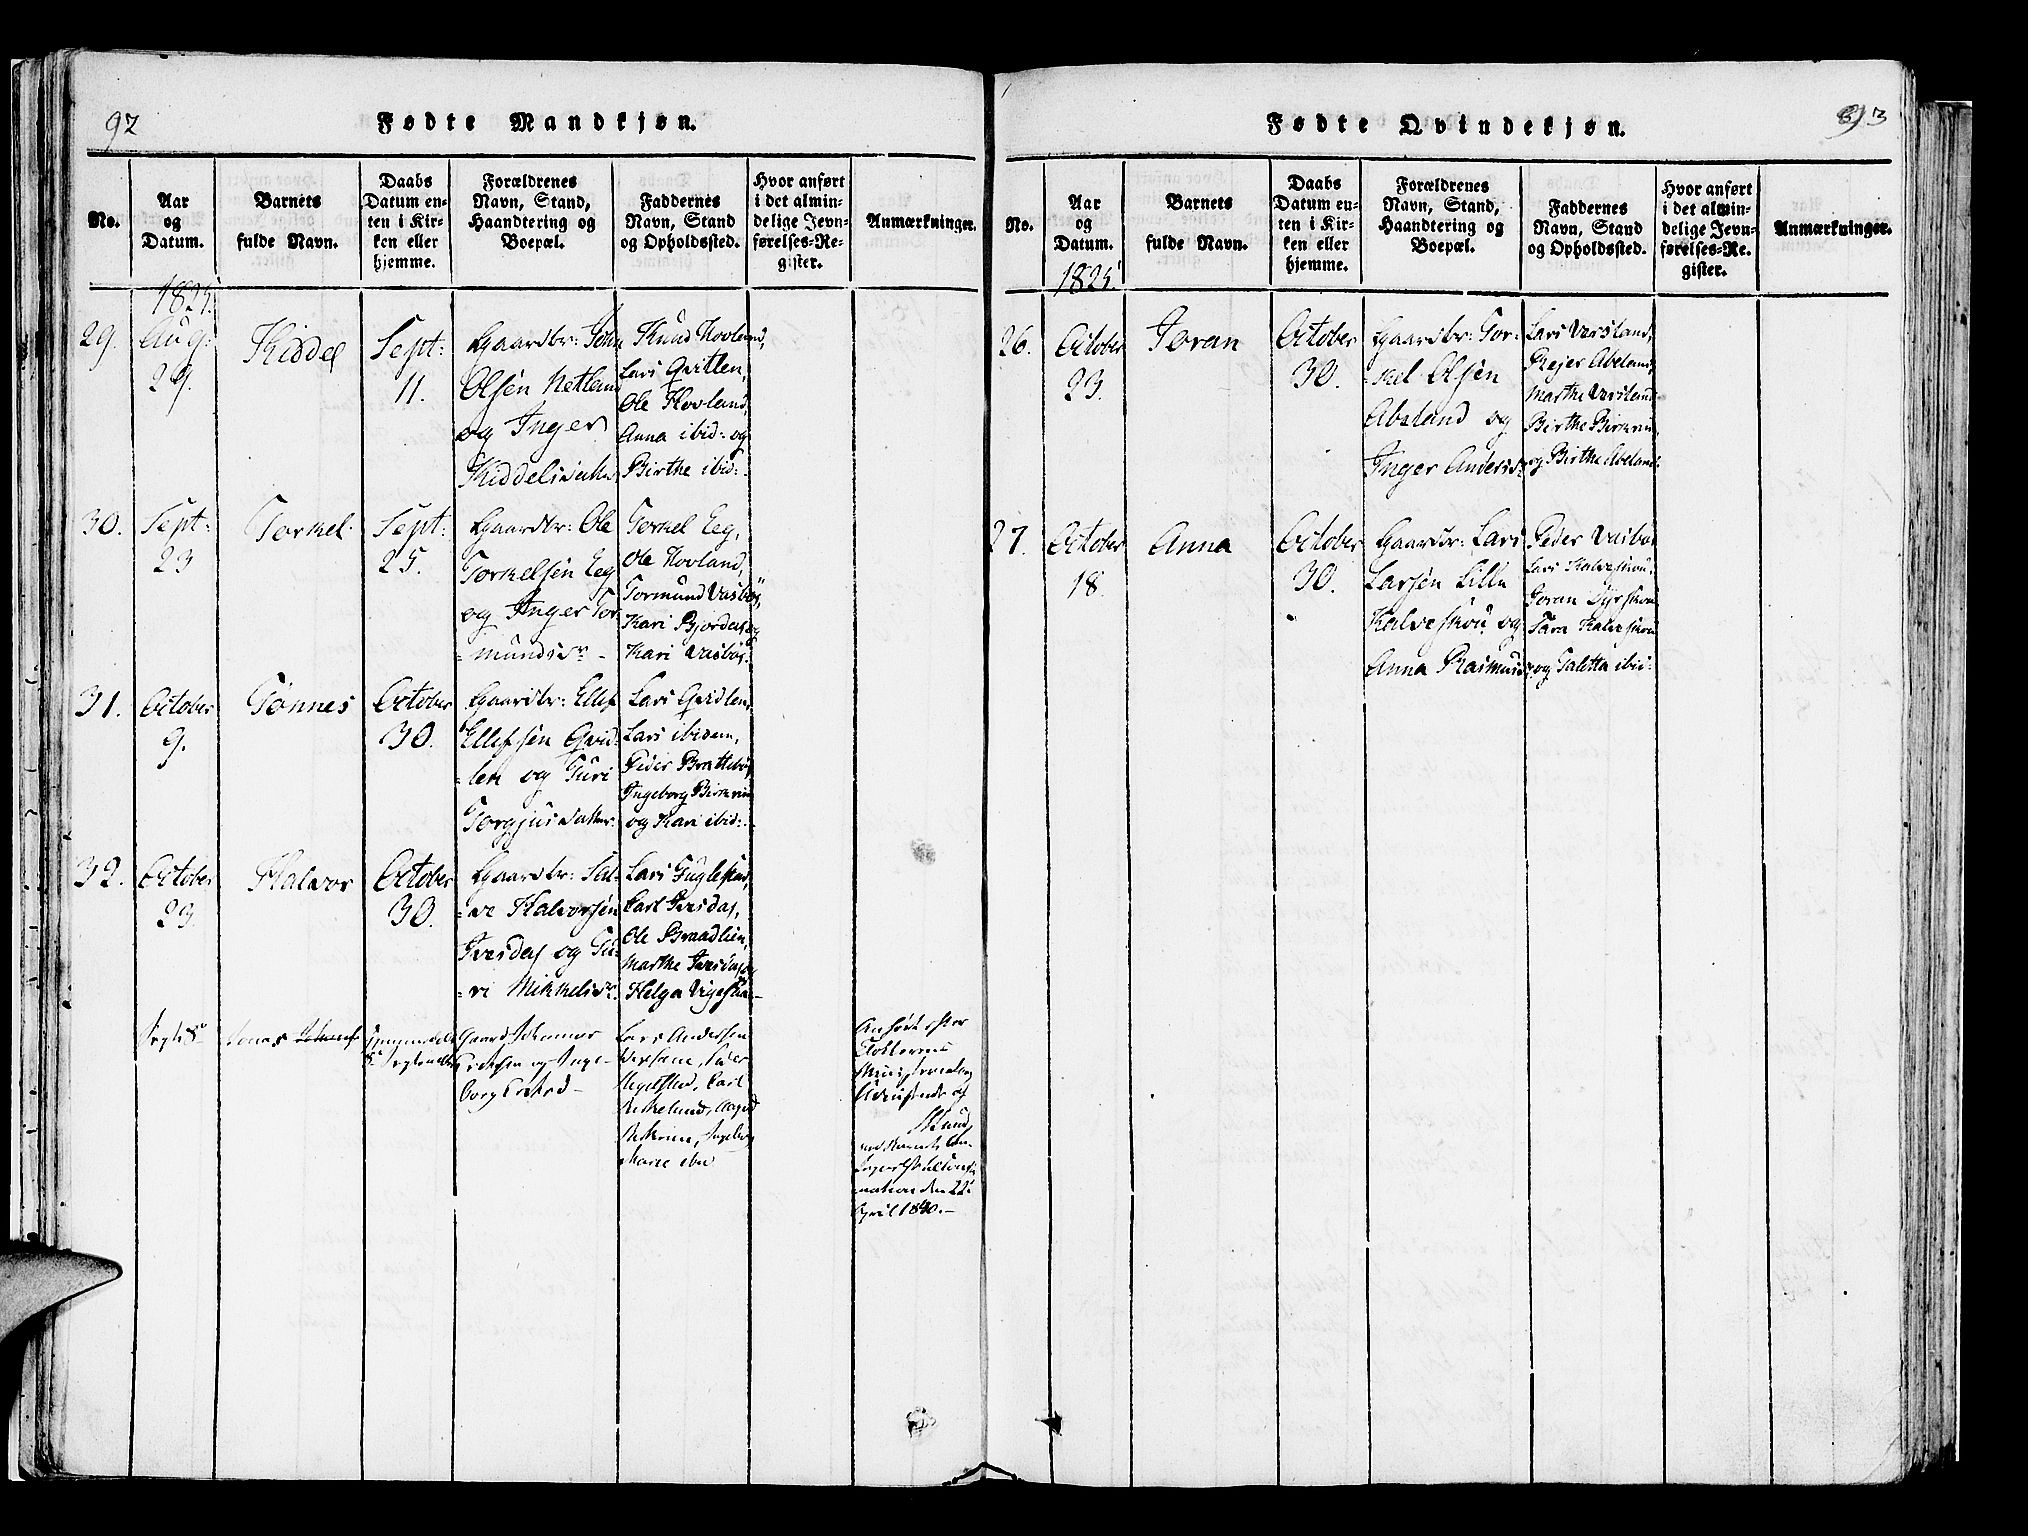 92
Fødte Mandkjøn.
No.
Aar
og
Datum.
Barnets
fulde Navn.
Daabs
Datum en-
ten i Kir-
ken eller
hjemme.
Forældrenes
Navn, Stand,
Haandtering og
Boepæl.
Faddernes
Navn, Stand
og Opholdssted.
Hvor anført
i det almin-
delige Jevn-
førelses-Re-
gister.
Anmærkninger.
1825.
29.
Aug:
29.
Kiddel
Sept:
11.
Gaardbr: John
Olsen Netland
og Inger
Kiddelsdatter
Knud Hovland,
Lars Qvitlen,
Ole Hovland,
Anna ibid: og
Birthe ibid:
30.
Sept:
23
Torkel
Sept:
25.
Gaardbr: Ole
Torkelsen Eeg
og Inger Tor
=mundsdr
Torkel Eeg,
Ole Hovland,
Tormund Vasbøe,
Kari Bjordal og
Kari Vasbøe.
31.
October
9.
Tønnes
October
30.
Gaardbr: Ellef
Ellefsen Qvid-
=len og Turi
Torgjusdatter.
Lars Qvidlen,
Lars ibidem,
Peder Brattebøe,
Ingeborg Birkrim
og Kari ibid:
32.
October
23.
Halvor
October
30.
Gaardbr: Sal-
=ve Halvorsen
Ivesdal og Tu-
=ri Mikkelsdr.
Lars Fuglestad,
Carl Ivesdal,
Ole Braadlien,
Marthe Ivesdal og
Helga Vigeskaa
Septr 8
Jonas
Gaardm Johannes
og Inge-
borg
Lars Andersen
Peder
Carl
Ingeborg
Marie ibid
Anført efter
Kirke
og
April 1840.
93
Fødte Qvindekjøn.
No.
Aar
og
Datum.
Barnets
fulde Navn.
Daabs
Datum en-
ten i Kir-
ken eller
hjemme.
Forældrenes
Navn, Stand,
Haandtering og
Boepæl.
Faddernes
Navn, Stand
og Opholdssted.
Hvor anført
i det almin-
delige Jevn-
førelses-Re-
gister.
Anmærkninger.
1825.
26.
October
23.
Joran
October
30.
Gaardbr: Tor-
=kel Olsen
Abeland og
Inger Andersdr
Lars Versland,
Rejer Abeland,
Marthe Versland
Birthe Birkrim
og Birthe Abeland.
27.
October
18.
Anna
October
30.
Gaardbr: Lars
Larsen Lille
Kalveskou og
Anna Rasmusdr
Peder Vasbøe
Lars Kalveskou,
Joran Dyrskou
Sara Kalveskou
og Taletta ibid: